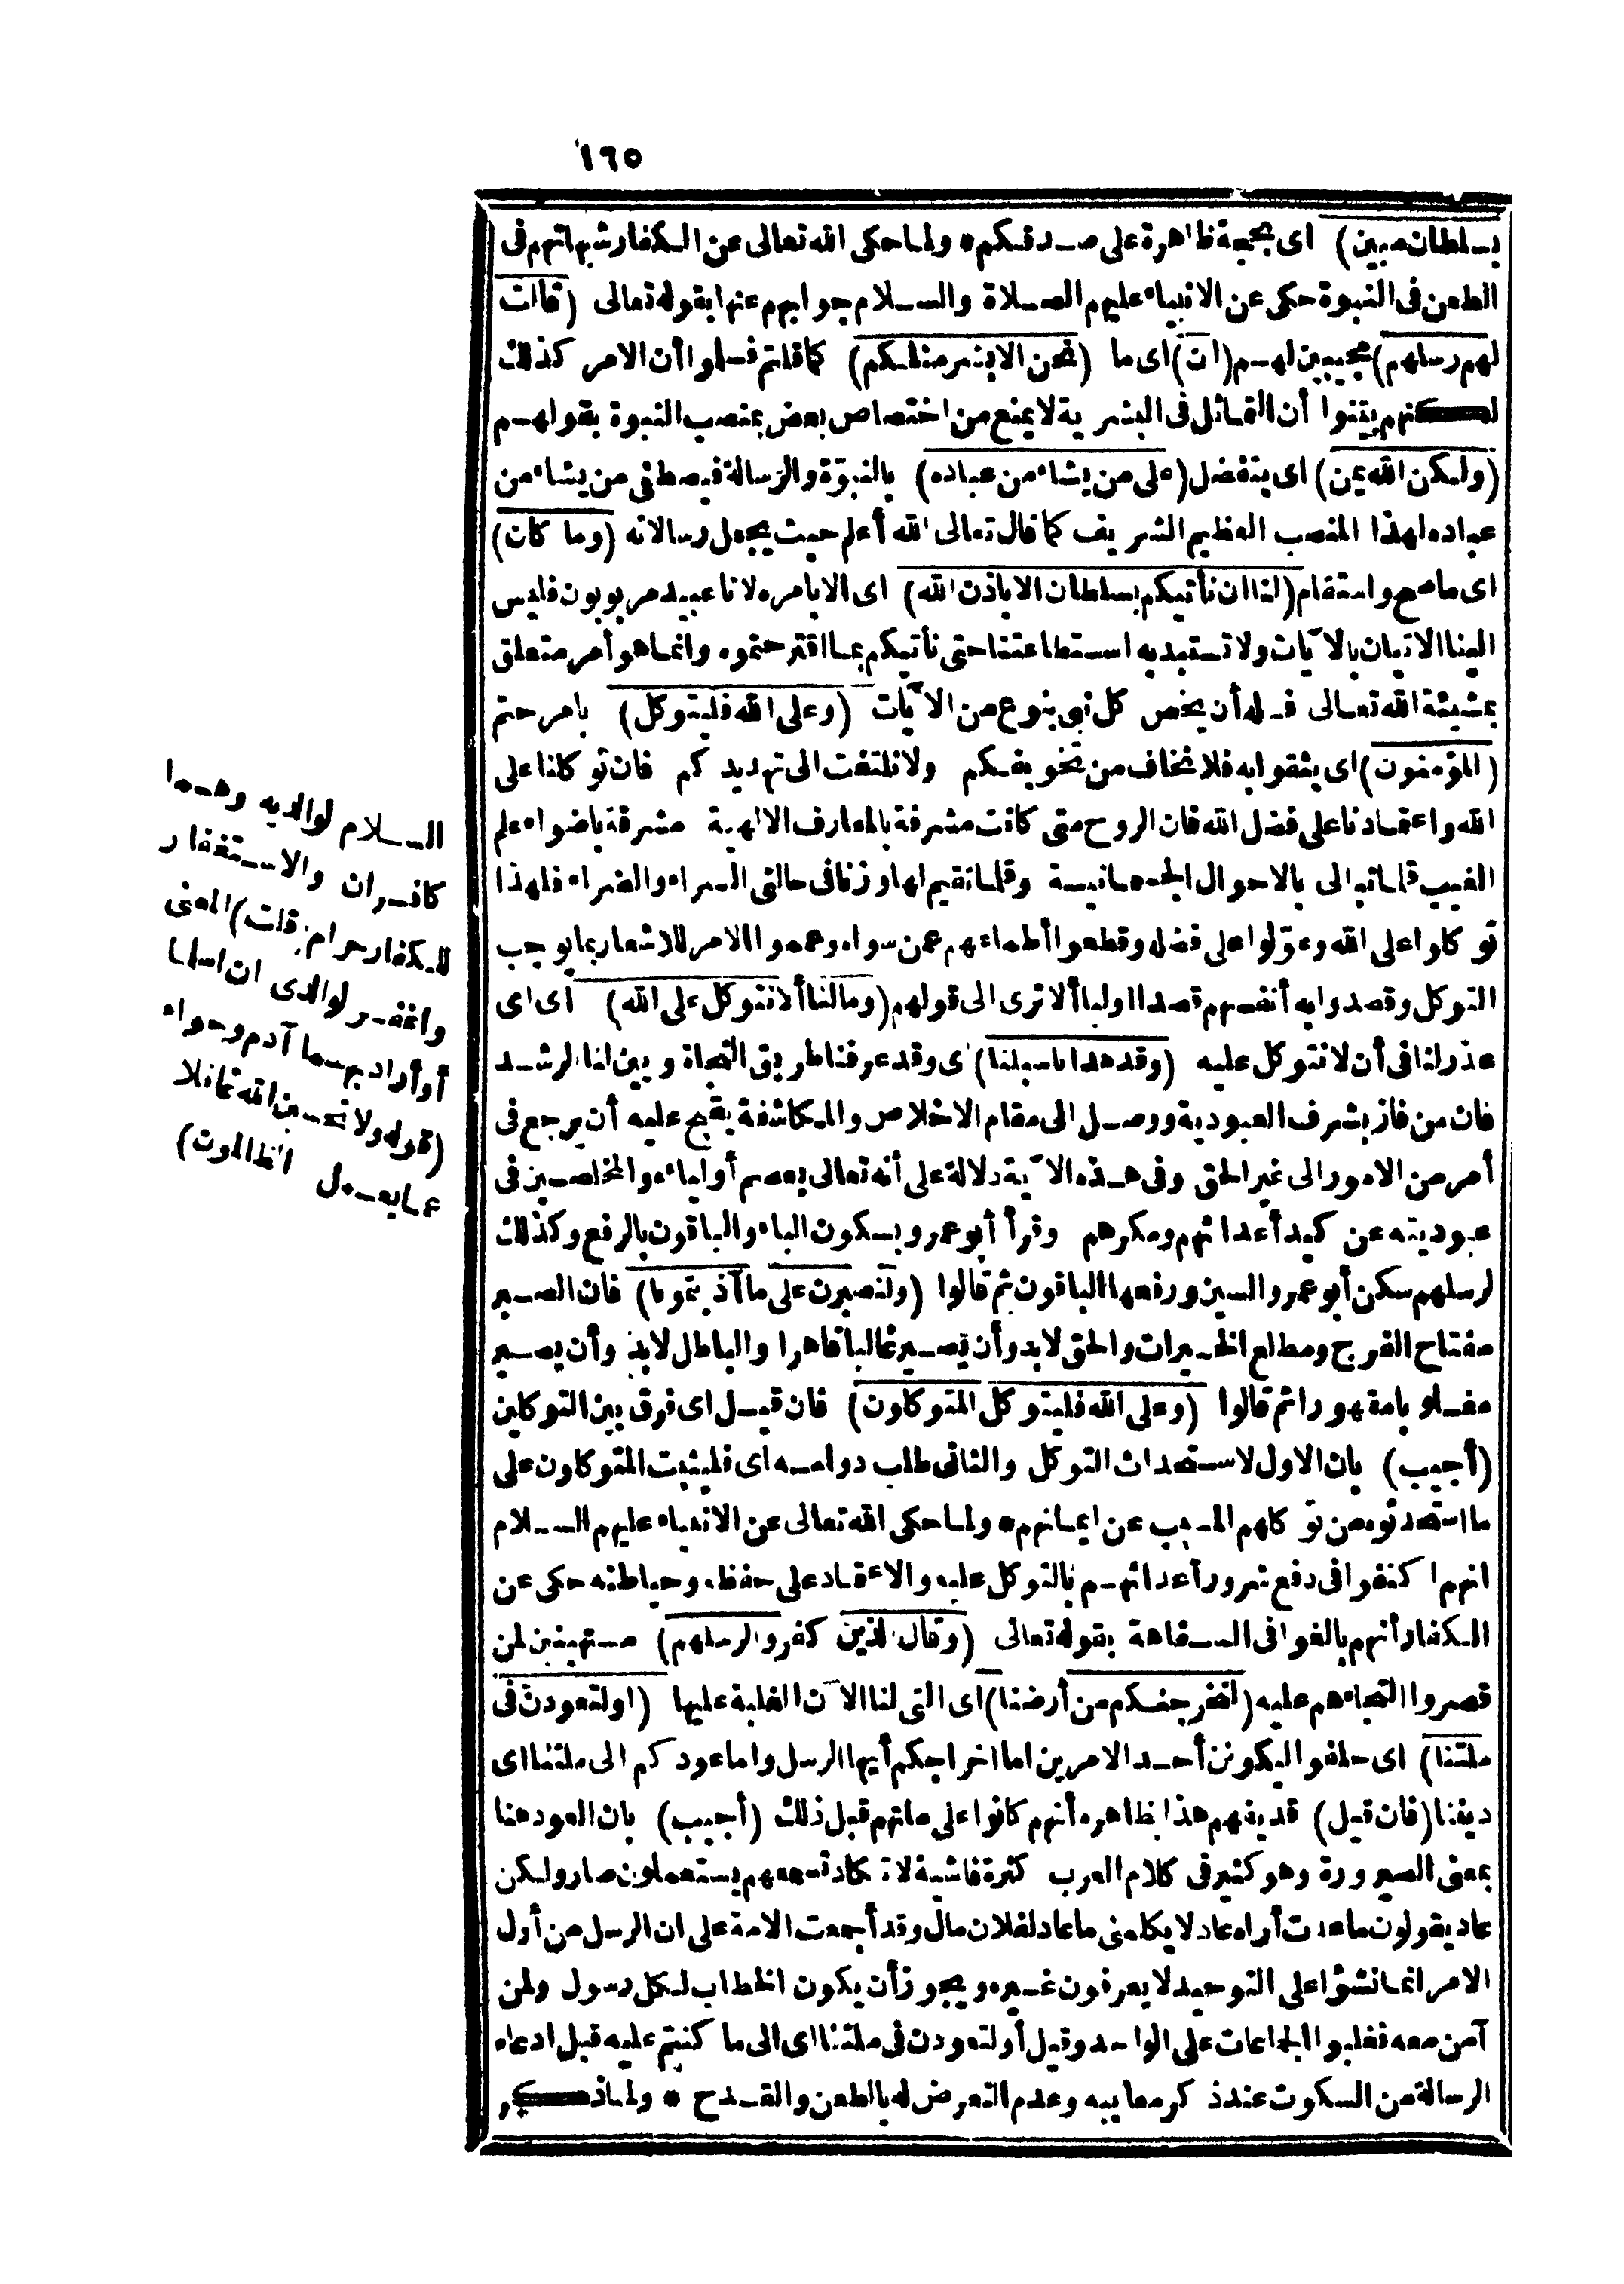 ١٦٥
بسلطان مبين) اى بحجة ظاهرة على صدقكم * ولما حكى الله تعالى عن الكفار شبهاتهم فى
الطعن فى النبوة حكى عن الانبياء عليهم الصلاة والسلام جوابهم عنها بقوله تعالى (قالت
لهم رسلهم) مجيبين لهم (ان) اى ما (نحن الا بشر مثلكم) كما قلتم فسلموا أن الامر كذلك
لكنهم بينوا أن التماثل فى البشرية لا يمنع من اختصاص بعض بمنصب النبوة بقولهم
(ولكن الله يمن) اى يتفضل (على من يشاء من عباده) بالنبوّة والرسالة فيصطفى من يشاء من
عباده لهذا المنصب العظيم الشريف كما قال تعالى الله أعلم حيث يجعل رسالاته (وما كان)
اى ما صح واستقام (لنا ان نأتيكم بسلطان الا باذن الله) اى الا بامره لانا عبيد مربوبون فليس
الينا الاتيان بالآيات ولا تستبد به استطاعتنا حتى نأتيكم بما اقترحتموه وانما هو أمر متعلق
بمشيئة الله تعالى فله أن يخص كل نبى بنوع من الآيات (وعلى الله فليتوكل) بامر حتم
(المؤمنون) اى يثقوا به فلا نخاف من تخويفكم ولا نلتفت الى تهديدكم فان توكلنا على
الله واعتمادنا على فضل الله فان الروح متى كانت مشرفة بالمعارف الالهية مشرقة باضواء علم
الغيب قلما تبالى بالاحوال الجسمانية وقلما تقيم لها وزنا فى حالتى السراء والضراء فلهذا
توكلوا على الله وعوّلوا على فضله وقطعوا أطماعهم عمن سواه وعمموا الامر للاشعار بما يوجب
التوكل وقصدوا به أنفسهم قصدا اوليا ألا ترى الى قولهم (وما لنا ألا نتوكل على الله) اى اى
عذر لنا فى أن لا نتوكل عليه (وقد هدانا سبلنا) اى وقد عرفنا طريق النجاة وبين لنا الرشد
فان من فاز بشرف العبودية ووصل الى مقام الاخلاص والمكاشفة يقبح عليه أن يرجع فى
أمر من الامور الى غير الحق وفى هذه الآية دلالة على أنه تعالى يعصم أولياءه والمخلصين فى
عبوديته عن كيد أعدائهم ومكرهم وقرأ أبو عمرو بسكون الباء والباقون بالرفع وكذلك
لرسلهم سكن أبو عمرو السين ورفعها الباقون ثم قالوا (ولنصبرن على ما آذيتمونا) فان الصبر
مفتاح الفرج ومطلع الخيرات والحق لابد وأن يصير غالبا قاهرا والباطل لابد وأن يصير
مغلوبا مقهورا ثم قالوا (وعلى الله فليتوكل المتوكلون) فان قيل اى فرق بين التوكلين
(أجيب) بان الاول لاستحداث التوكل والثانى طلب دوامه اى فليثبت المتوكلون على
ما استحدثوه من توكلهم المسبب عن ايمانهم * ولما حكى الله تعالى عن الانبياء عليهم السلام
انهم اكتفوا فى دفع شرور أعدائهم بالتوكل عليه والاعتماد على حفظه وحياطته حكى عن
الكفار أنهم بالغوا فى السفاهة بقوله تعالى (وقال الذين كفروا لرسلهم) مستهينين لمن
قصروا التجاءهم عليه (لنخرجنكم من أرضنا) اى التى لنا الآن الغلبة عليها (او لتعودن فى
ملتنا) اى حلفوا ليكونن أحد الامرين اما اخراجكم أيها الرسل واما عودكم الى ملتنا اى
ديننا (فان قيل) قد يفهم هذا بظاهره أنهم كانوا على ملتهم قبل ذلك (أجيب) بان العود هنا
بمعنى الصيرورة وهو كثير فى كلام العرب كثرة فاشية لا تكاد تسمعهم يستعملون صار ولكن
عاد يقولون ما عدت أراه عاد لا يكلمنى ما عاد لفلان مال وقد أجمعت الامة على ان الرسل من أول
الامر انما نشؤا على التوحيد لا يعرفون غيره ويجوز أن يكون الخطاب لكل رسول ولمن
آمن معه فغلبوا الجماعات على الواحد وقيل أو لتعودن فى ملتنا اى الى ما كنتم عليه قبل ادعاء
الرسالة من السكوت عند ذكر معايبه وعدم التعرض له بالطعن والقدح * ولما ذكر
السلام لوالديه وهما
كافران والاستغفار
للكفار حرام (قلت) المعنى
واغفر لوالدى ان اسلما
أو أراد بهما آدم وحواء
(قوله ولا تحسبن الله غافلا
عما يعمل الظالمون)